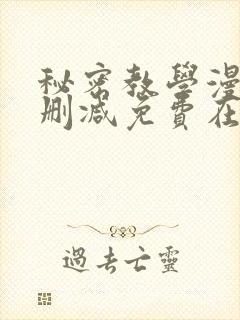 秘密教學漫
刪減免費在
過去亡靈